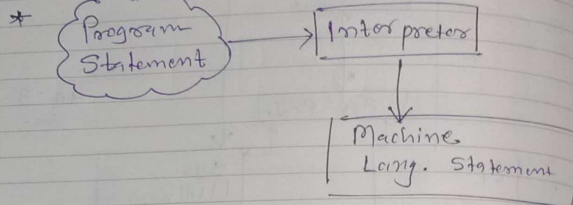 * Program
Statement
Interpreter
Machine
Lang. Statement